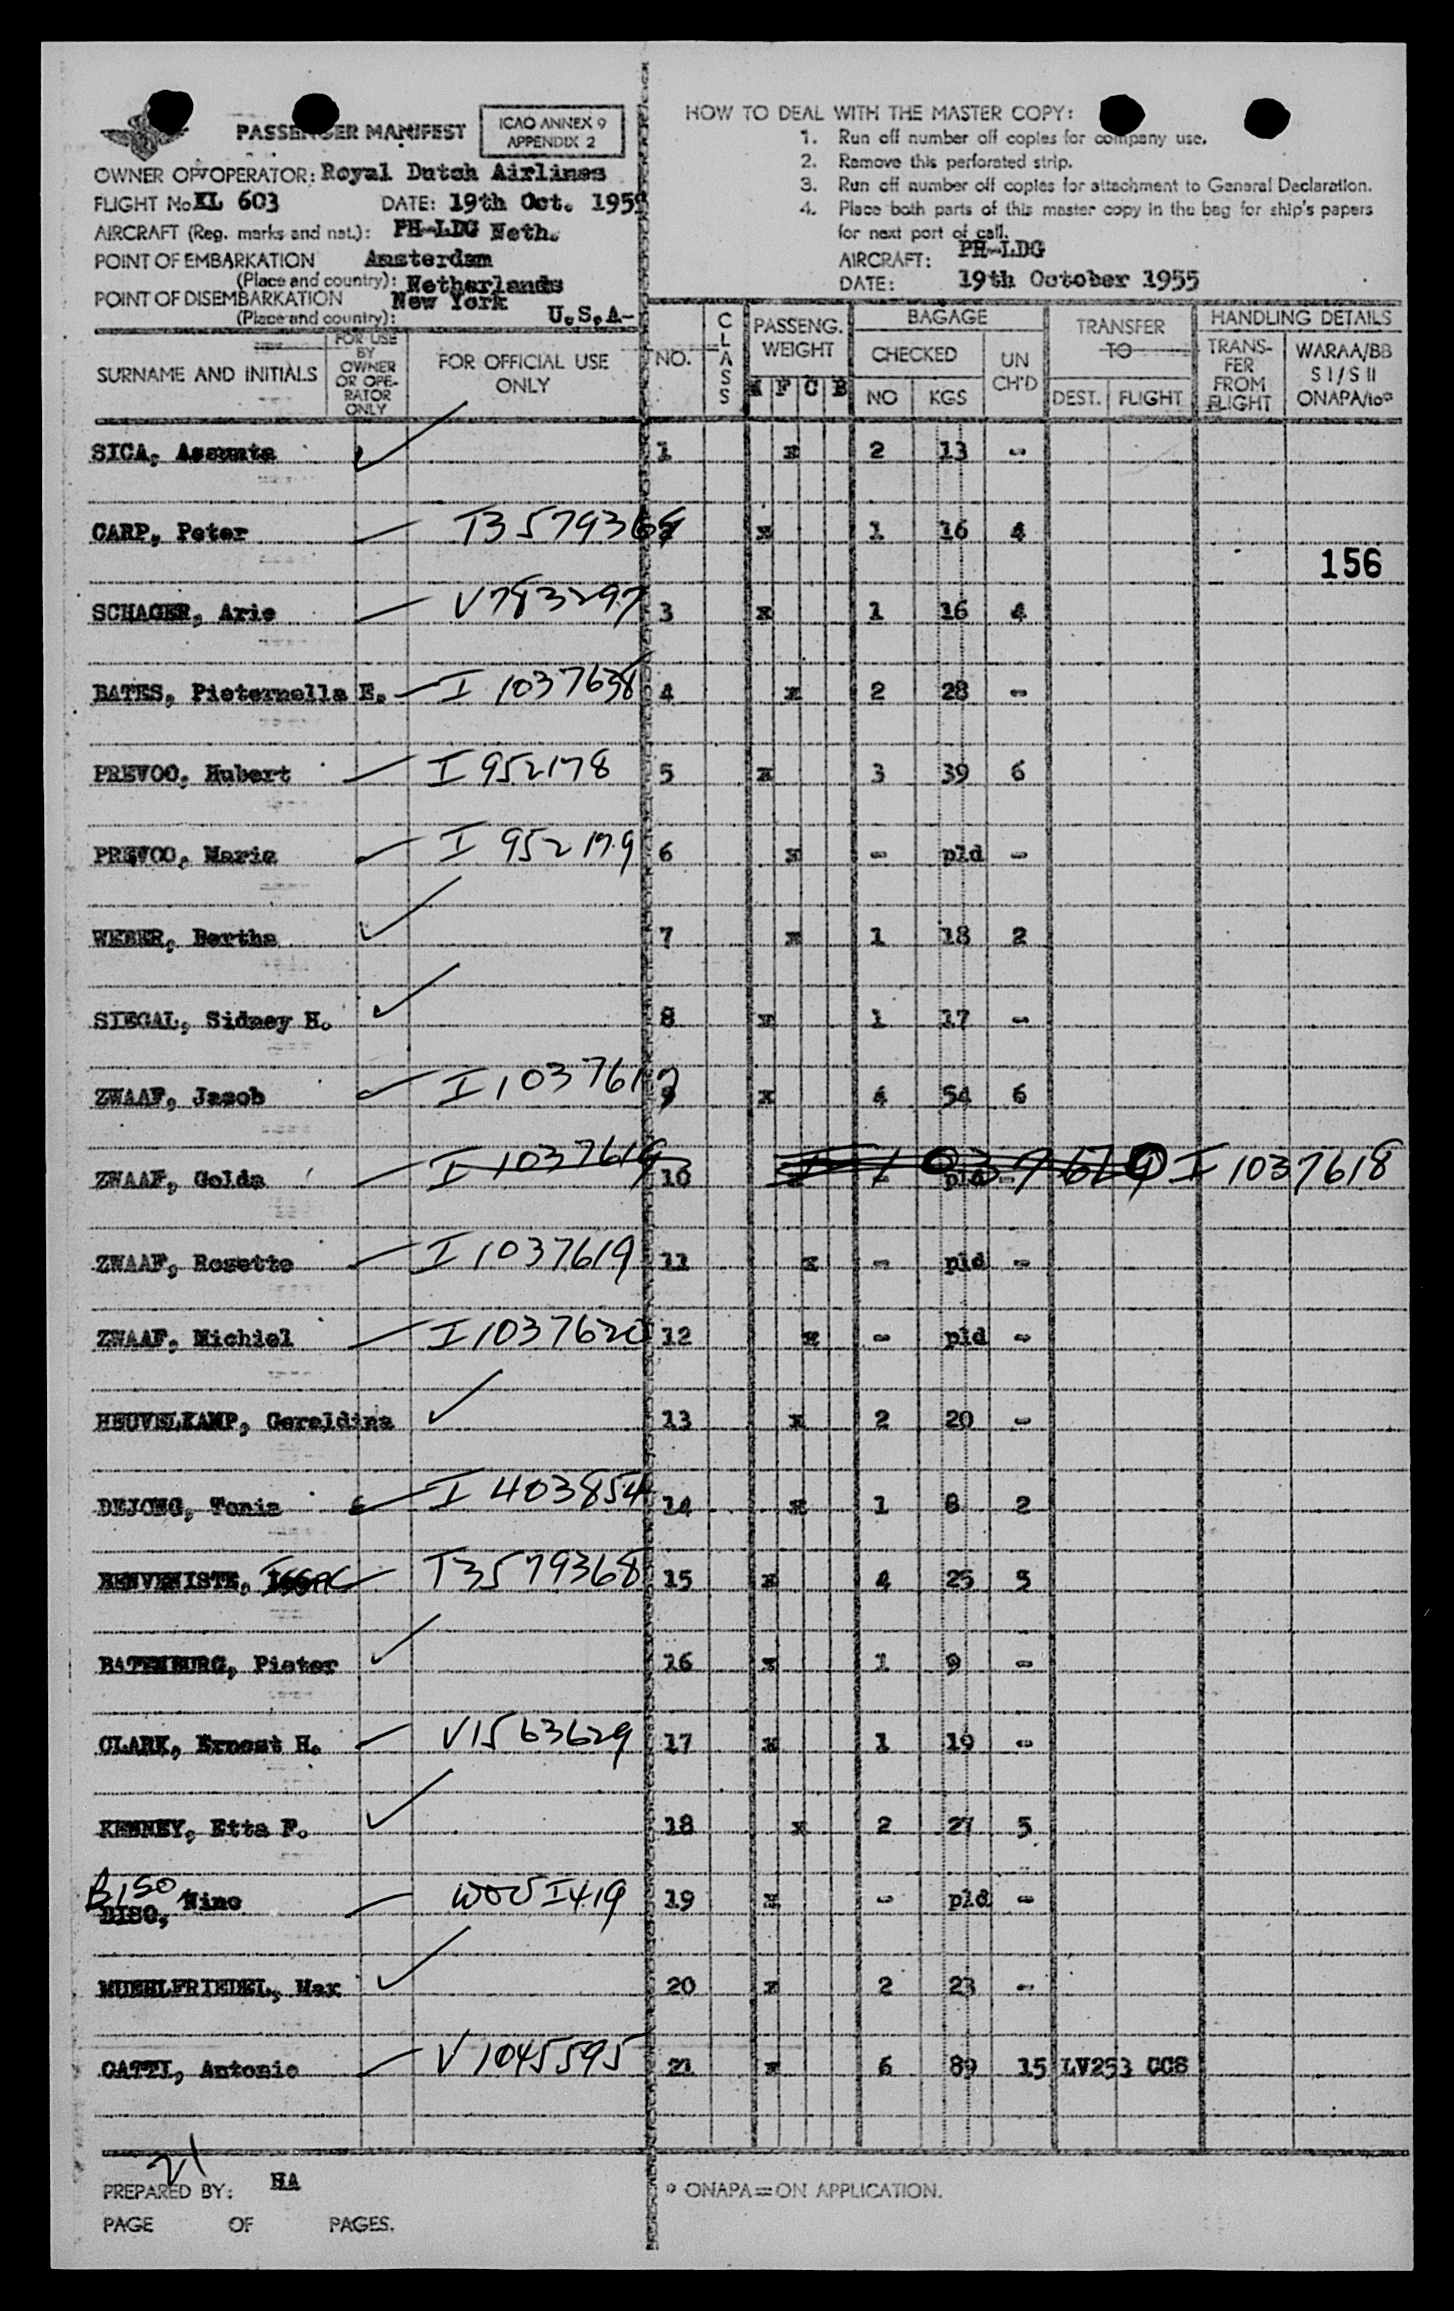 PASSENGER MANIFEST
ICAO ANNEX 9
APPENDIX 2
OWNER OR OPERATOR: Royal Dutch Airlines
FLIGHT No KL 603 DATE: 19th Oct. 1955
AIRCRAFT (Reg. marks and nat.): PH-LDG Neth.
POINT OF EMBARKATION Amsterdam
(Place and country): Netherlands
POINT OF DISEMBARKATION New York
(Place and country): U.S.A-
HOW TO DEAL WITH THE MASTER COPY:
1. Run off number off copies for company use.
2. Remove this perforated strip.
3. Run off number off copies for attachment to General Declaration.
4. Place both parts of this master copy in the bag for ship's papers
for next port of call.
AIRCRAFT: PH-LDG
DATE: 19th October 1955
SURNAME AND INITIALS
FOR USE
BY
OWNER
OR OPE-
RATOR
ONLY
FOR OFFICIAL USE
ONLY
NO.
CLASS
PASSENG.
WEIGHT
M F C B
BAGAGE
CHECKED
NO KGS
UN
CH'D
TRANSFER
TO
DEST. FLIGHT
HANDLING DETAILS
TRANS-
FER
FROM
FLIGHT
WARAA/BB
S I / S II
ONAPA/to*
SICA, Assunta 1 x 2 13 -
CARP, Peter T3579369 2 x 1 16 4
156
SCHAGER, Arie V783297 3 x 1 16 4
BATES, Pieternella E. I 1037638 4 x 2 28 -
PREVOO, Hubert I 952178 5 x 3 39 6
PREVOO, Maria I 952179 6 x - pld -
WEBER, Bertha 7 x 1 18 2
SIEGAL, Sidney H. 8 x 1 17 -
ZWAAF, Jacob I 1037617 9 x 4 54 6
ZWAAF, Golda I 1037619 10 - pld - I 1037618
ZWAAF, Rosette I 1037619 11 x - pld -
ZWAAF, Michiel I 1037620 12 x - pld -
HEUVELKAMP, Geraldina 13 x 2 20 -
DEJONG, Tonia I 403854 14 x 1 8 2
BENVENISTE, Isaac T3579368 15 x 4 25 5
BATENBURG, Pieter 16 x 1 9 -
CLARK, Ernest H. V1563629 17 x 1 19 -
KENNEY, Etta F. 18 x 2 27 5
BISO
DISO, Nino WOV I419 19 x - pld -
MUEHLFRIEDEL, Max 20 x 2 23 -
GATTI, Antonio V 1045595 21 x 6 89 15 LV253 CCS
21
PREPARED BY: HA
PAGE OF PAGES.
* ONAPA = ON APPLICATION.